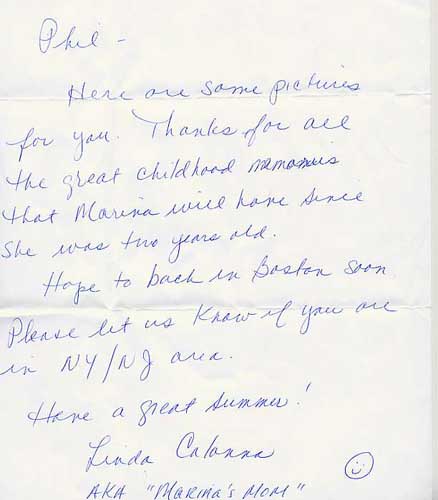 Phil -
Here are some pictures
for you. Thanks for all
the great childhood memories
that Marina will have since
she was two years old.
Hope to back in Boston soon
Please let us know if you are
in NY/NJ area.
Have a great summer!
Linda Calanna
AKA "Marina's Mom"